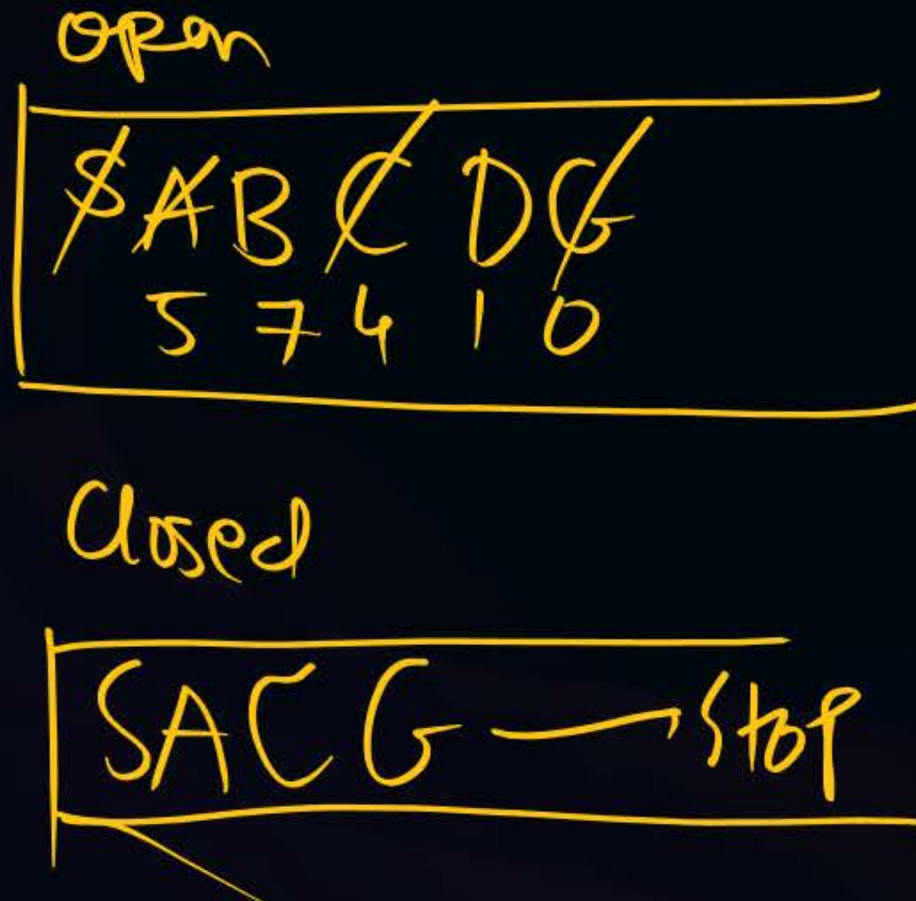 open
S A B C D G
5 7 4 1 0
Closed
SACG → Stop